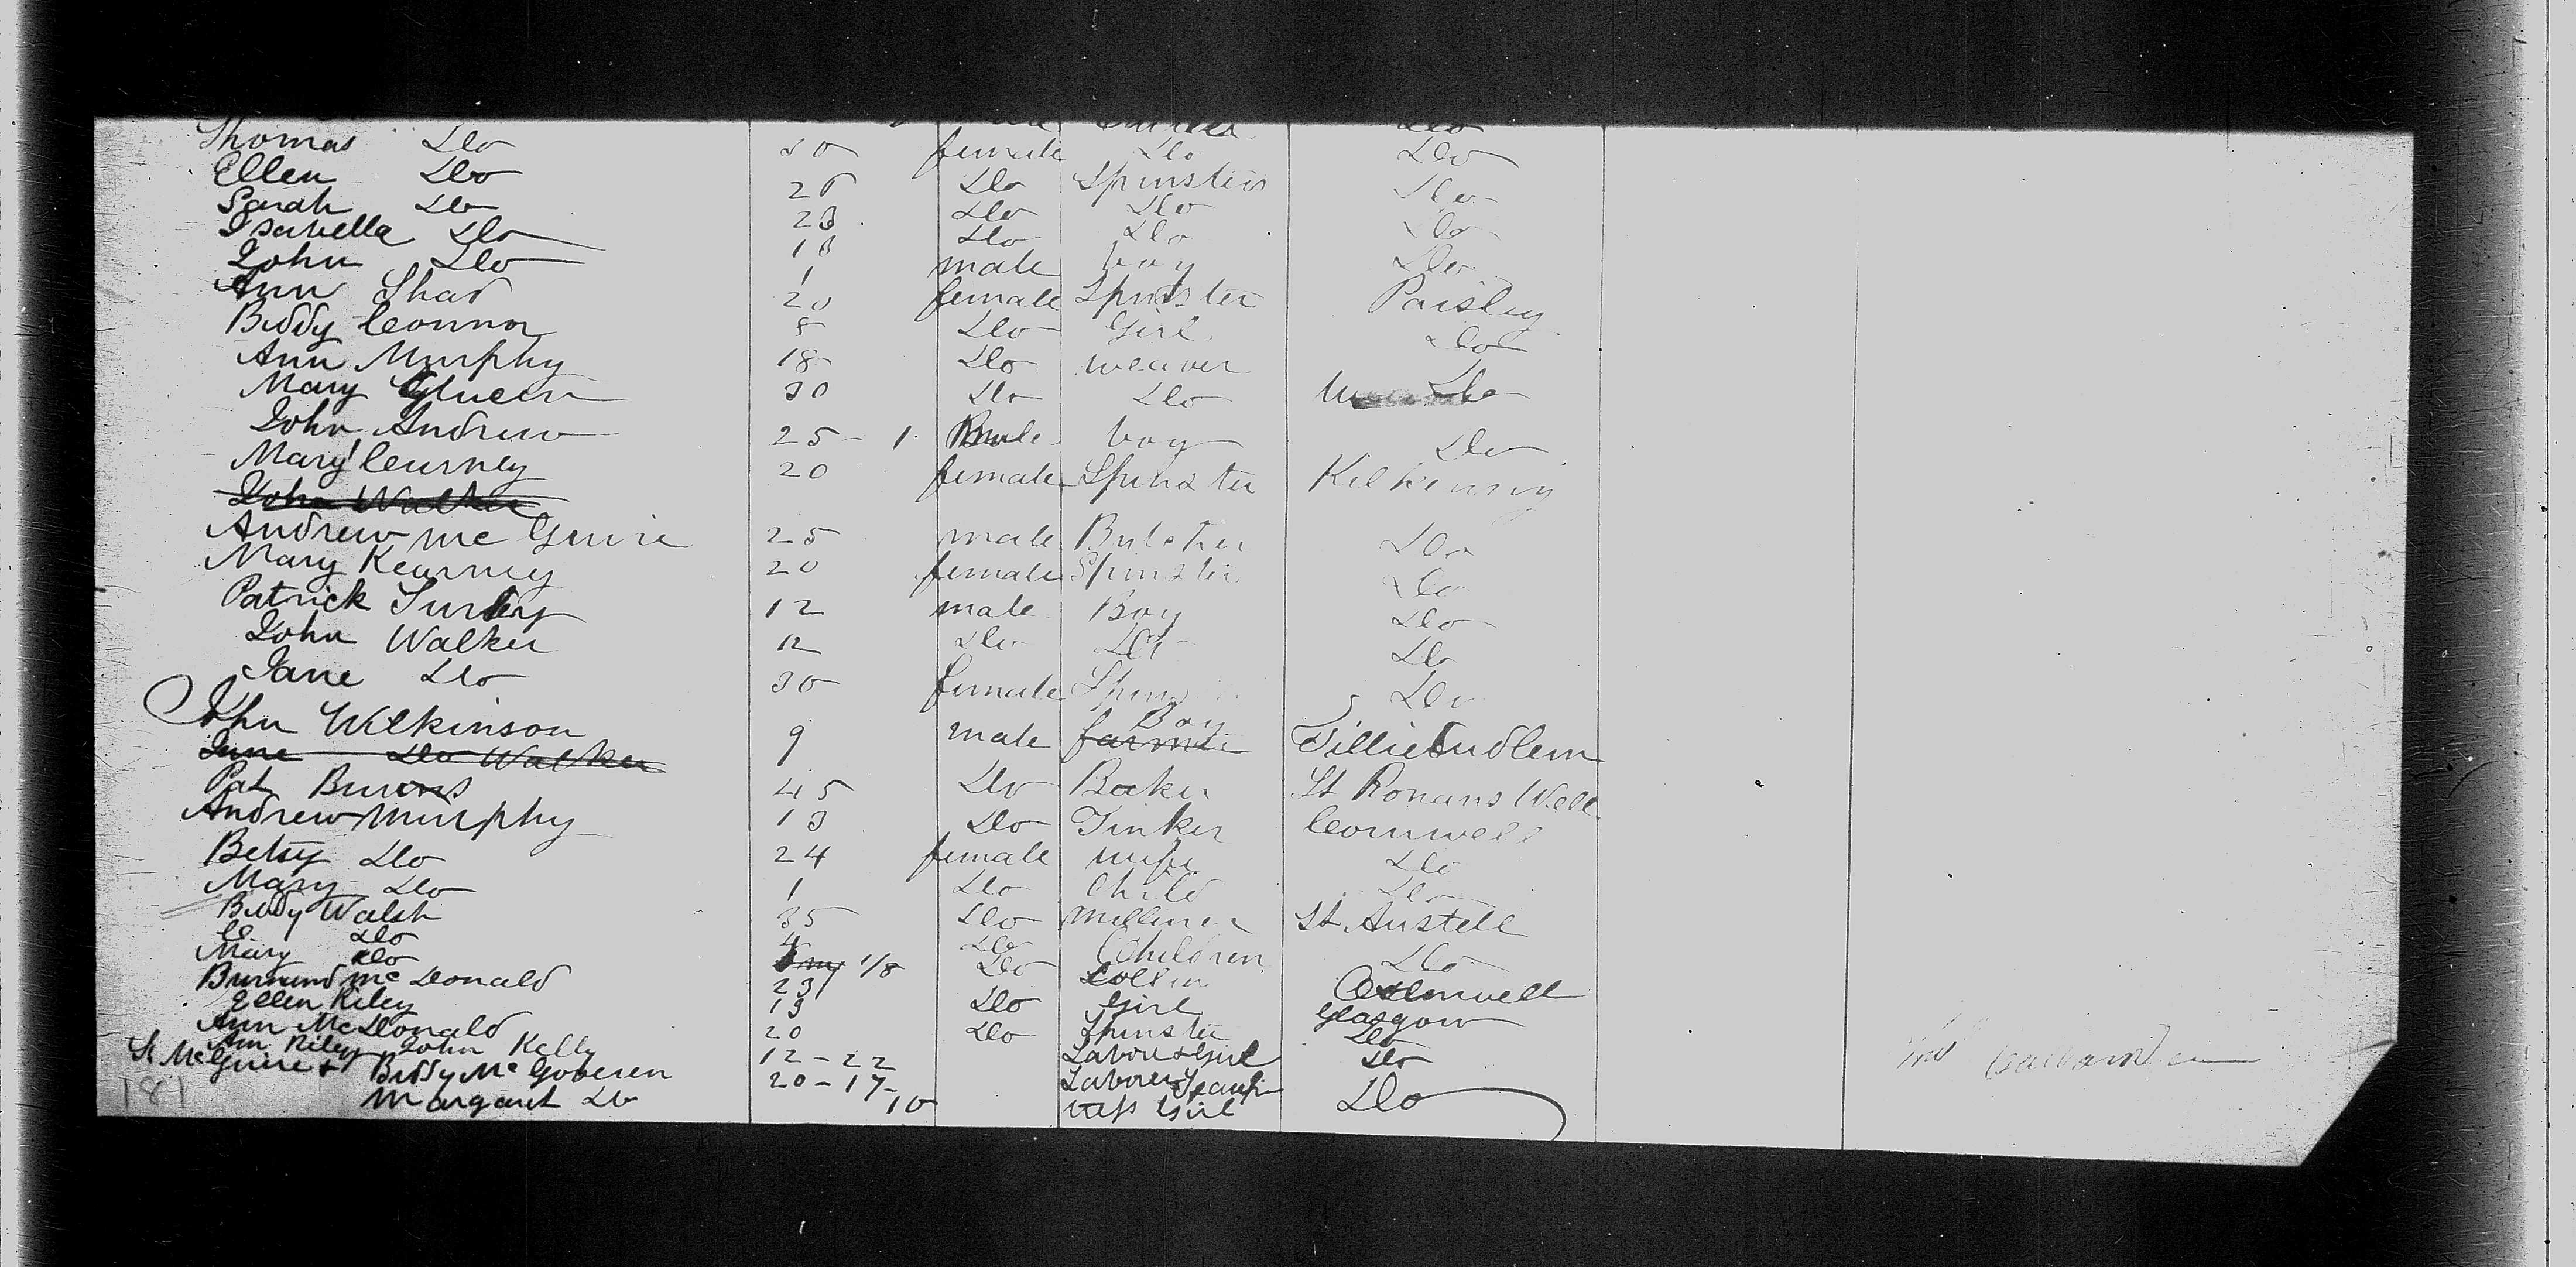 Thomas Do
Ellen Do 30 female Do Do
Sarah Do 26 Do Spinsters Do
Isabella Do 23 Do Do Do
John Do 18 Do Do Do
Ann Shaw 1 male boy Do
Biddy Connor 20 female Spinster Paisley
Ann Murphy 8 Do Girl Do
Mary 18 Do weaver Do
John Andrew 30 Do Do
Mary Cearney 25 - 1 male boy Do
John Walker 20 female Spinster Kilkenny
Andrew Mc Guire 25 male Butcher Do
Mary Kearney 20 female Spinster Do
Patrick 12 male Boy Do
John Walker 12 Do Do Do
Jane Do 30 female Do
John Wilkinson 9 male farmer Boy Tillietudlem
Jane Do Walker
Pat Burns 45 Do Baker St Ronans Well
Andrew Murphy 13 Do Tinker Cornwell
Betsy Do 24 female wife Do
Mary Do 1 Do Child Do
Biddy Walsh 35 Do Milliner St Austell
Do 4 Do Children
Mary Do 1/8 Do Do
Mc Donald 23
Ellen Riley 19 Do Girl Glasgow
Ann McDonald 20 Do Spinster Do
Ann Riley John Kelly 12 - 22 Labor & Girl Do
McGuire & Biddy Mc Goberen 20 - 17 - Laborer
Margaret Do 10 Girl Do
181